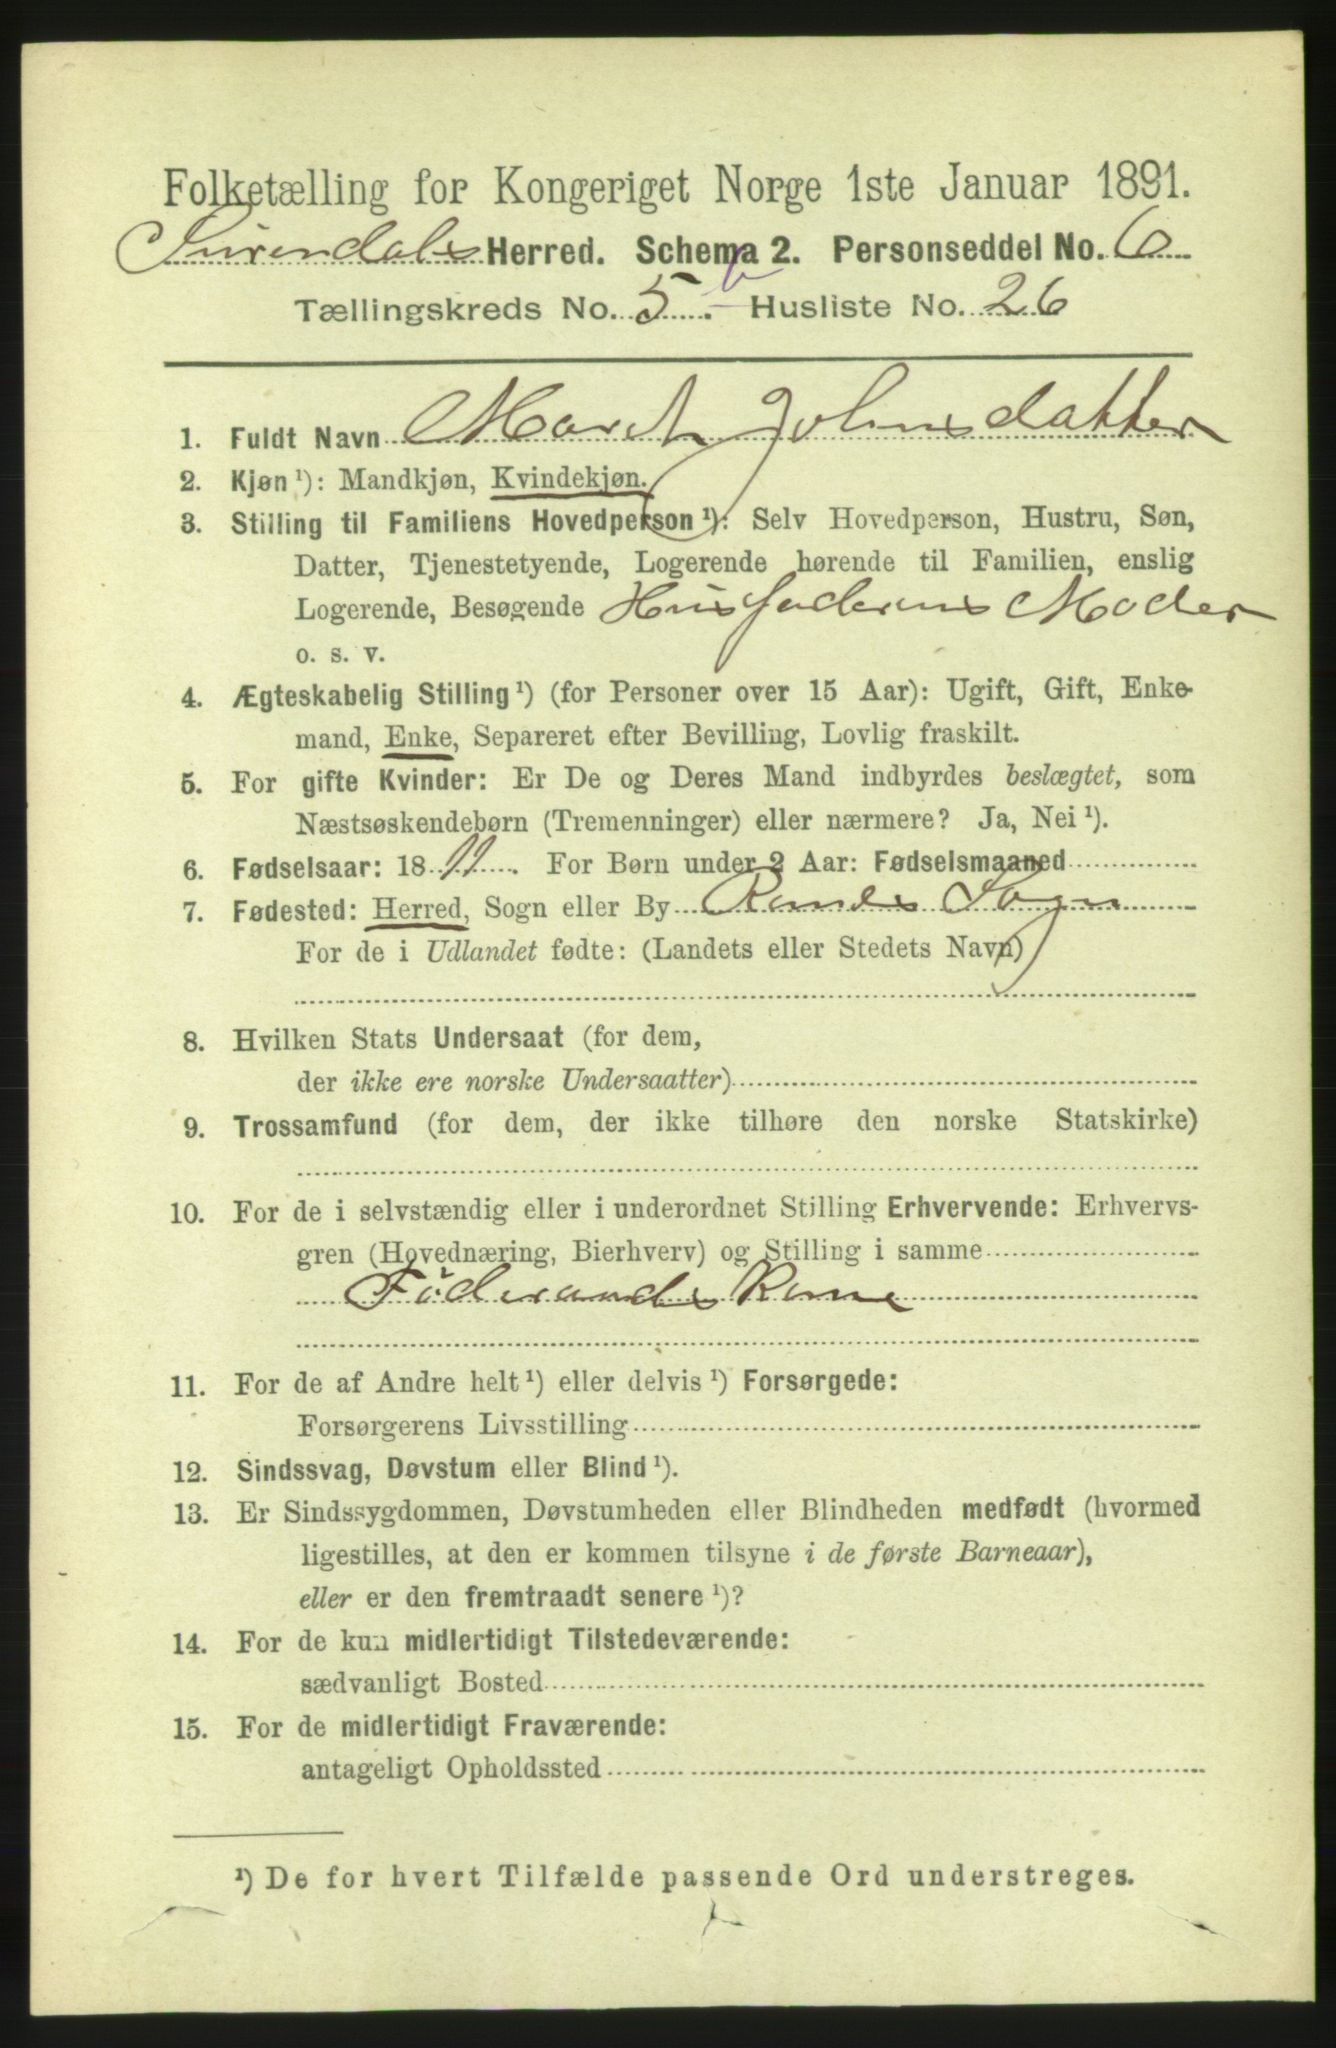 Folketælling for Kongeriget Norge 1ste Januar 1891.
Surendals Herred. Schema 2. Personseddel No. 6
Tællingskreds No. 5. b Husliste No. 26
1. Fuldt Navn Marit Johnsdatter
2. Kjøn ¹): Mandkjøn, Kvindekjøn.
3. Stilling til Familiens Hovedperson ¹): Selv Hovedperson, Hustru, Søn,
Datter, Tjenestetyende, Logerende hørende til Familien, enslig
Logerende, Besøgende Husfaderens Moder
o. s. v.
4. Ægteskabelig Stilling ¹) (for Personer over 15 Aar): Ugift, Gift, Enke-
mand, Enke, Separeret efter Bevilling, Lovlig fraskilt.
5. For gifte Kvinder: Er De og Deres Mand indbyrdes beslægtet, som
Næstsøskendebørn (Tremenninger) eller nærmere? Ja, Nei ¹).
6. Fødselsaar: 1811. For Børn under 2 Aar: Fødselsmaaned
7. Fødested: Herred, Sogn eller By Ranes Sogn
For de i Udlandet fødte: (Landets eller Stedets Navn)
8. Hvilken Stats Undersaat (for dem,
der ikke ere norske Undersaatter)
9. Trossamfund (for dem, der ikke tilhøre den norske Statskirke)
10. For de i selvstændig eller i underordnet Stilling Erhvervende: Erhvervs-
gren (Hovednæring, Bierhverv) og Stilling i samme
Føderaads Kone
11. For de af Andre helt ¹) eller delvis ¹) Forsørgede:
Forsørgerens Livsstilling
12. Sindssvag, Døvstum eller Blind ¹).
13. Er Sindssygdommen, Døvstumheden eller Blindheden medfødt (hvormed
ligestilles, at den er kommen tilsyne i de første Barneaar),
eller er den fremtraadt senere ¹)?
14. For de kun midlertidigt Tilstedeværende:
sædvanligt Bosted
15. For de midlertidigt Fraværende:
antageligt Opholdssted
¹) De for hvert Tilfælde passende Ord understreges.